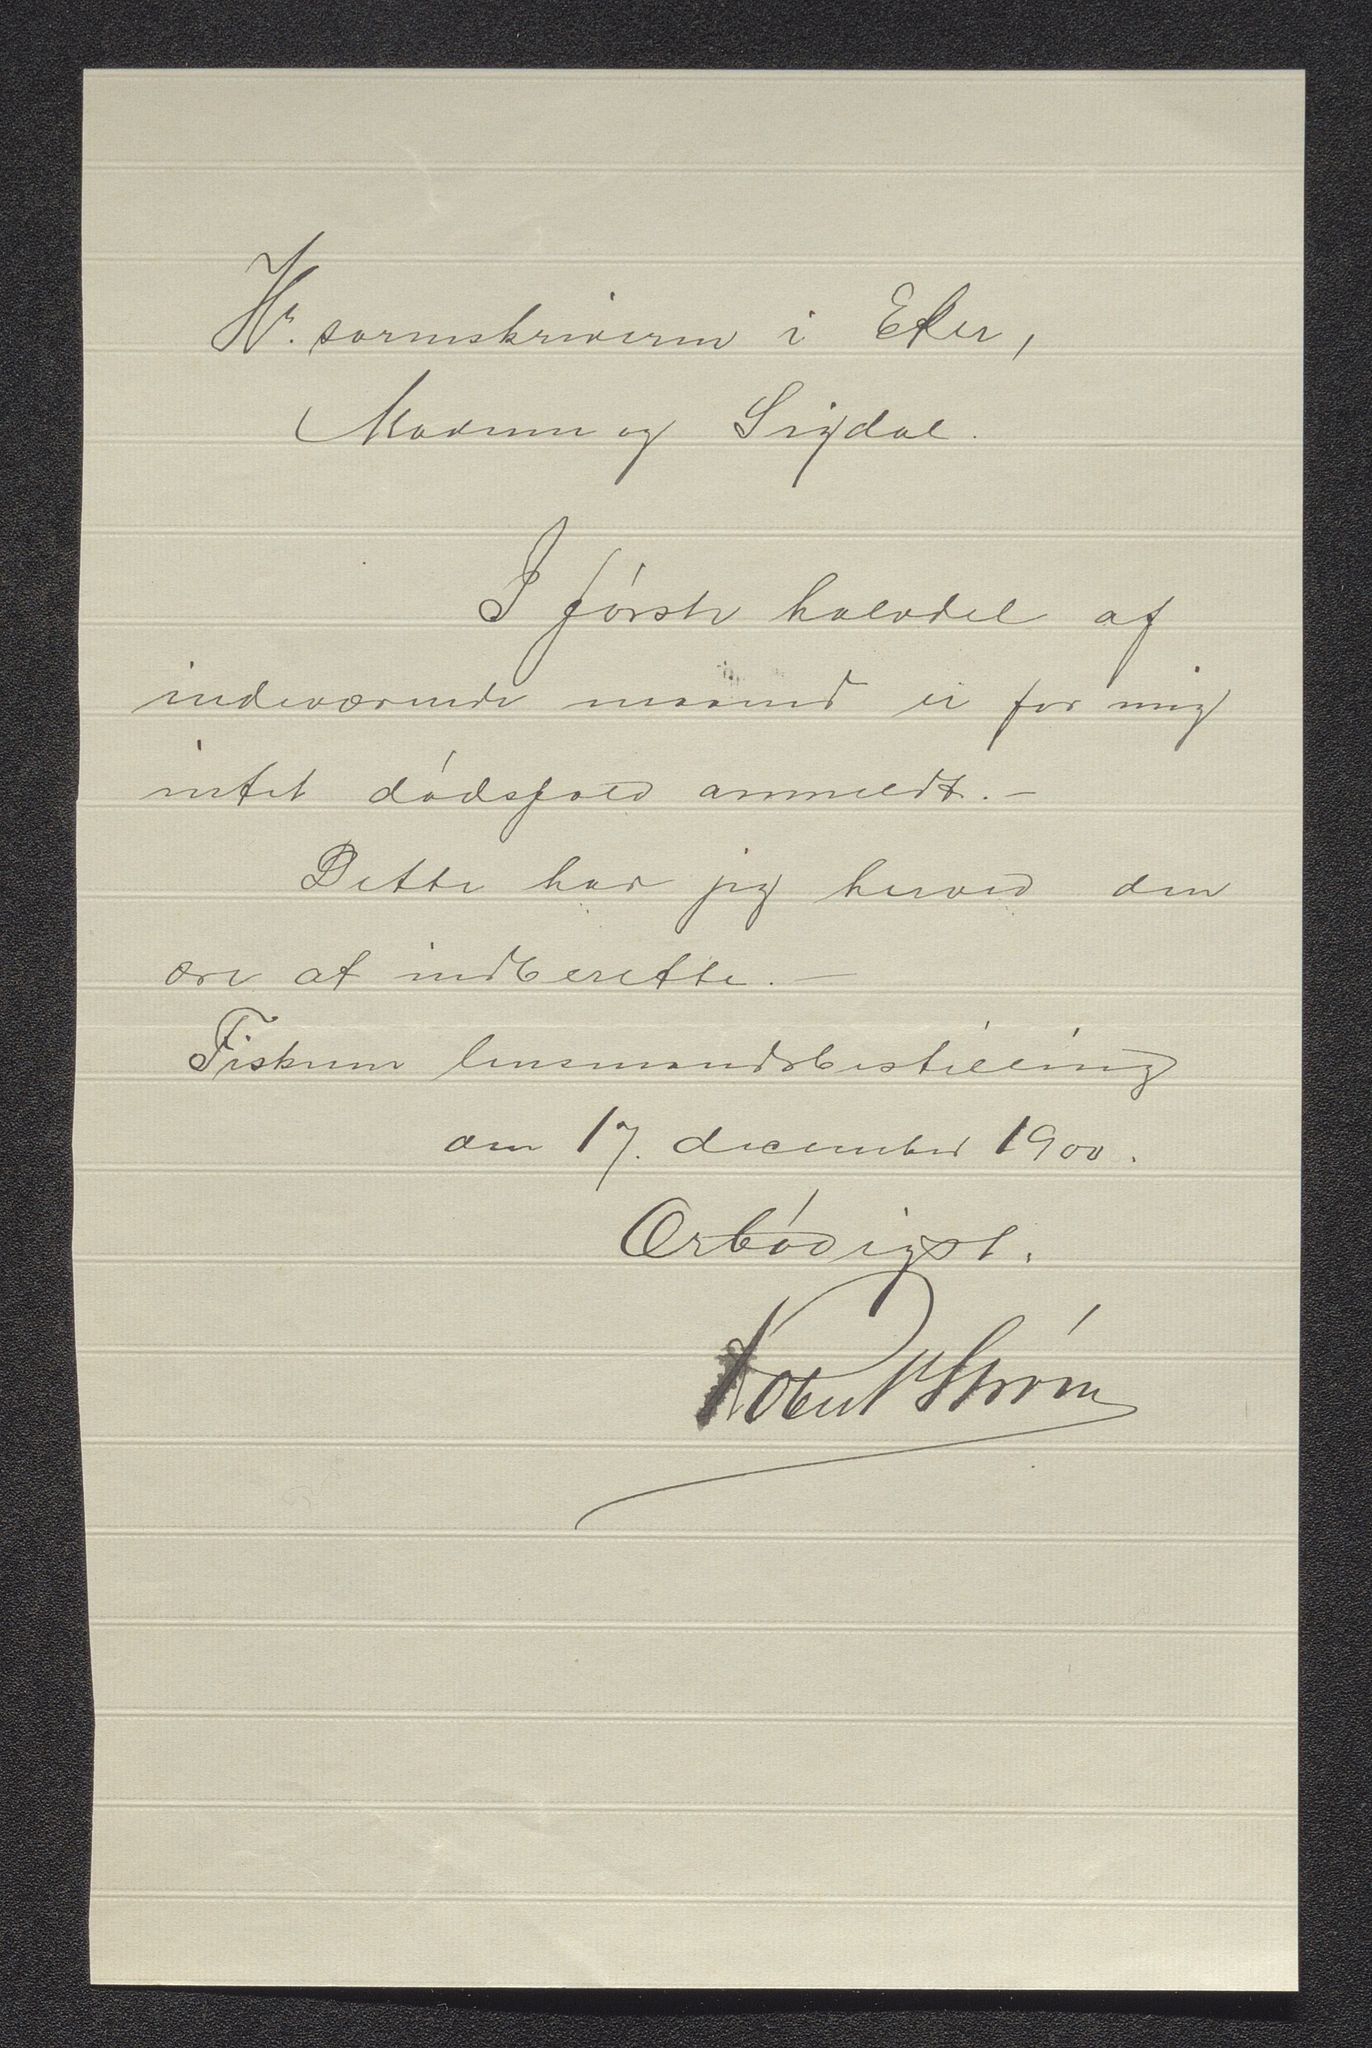 Hr. sorenskriveren i Eker,
Modum og Sigdal.
I første halvdel af
indeværende maaned er for mig
intet dødsfald anmeldt. –
Dette har jeg herved den
ære at indberette. –
Fiskum lensmandsbestilling
den 17. december 1900.
Ærbødigst.
Robert Strøm